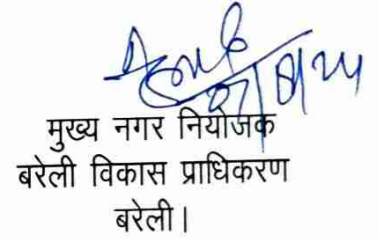 मुख्य नगर नियोजक
बरेली विकास प्राधिकरण
बरेली।